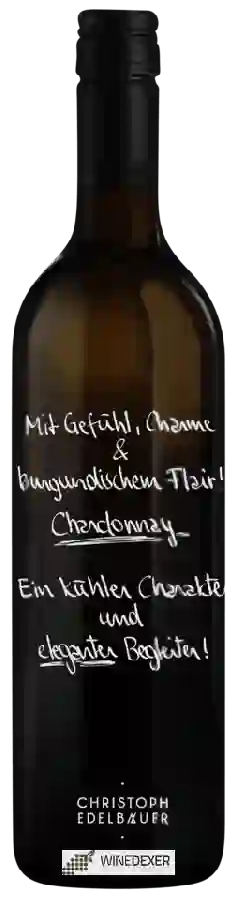 Mit Gefühl, Charme
&
burgundischem Flair!
Chardonnay
Ein kühler Charakte
und
eleganter Begleiter!
CHRISTOPH
EDELBAUER
WINEDEXER